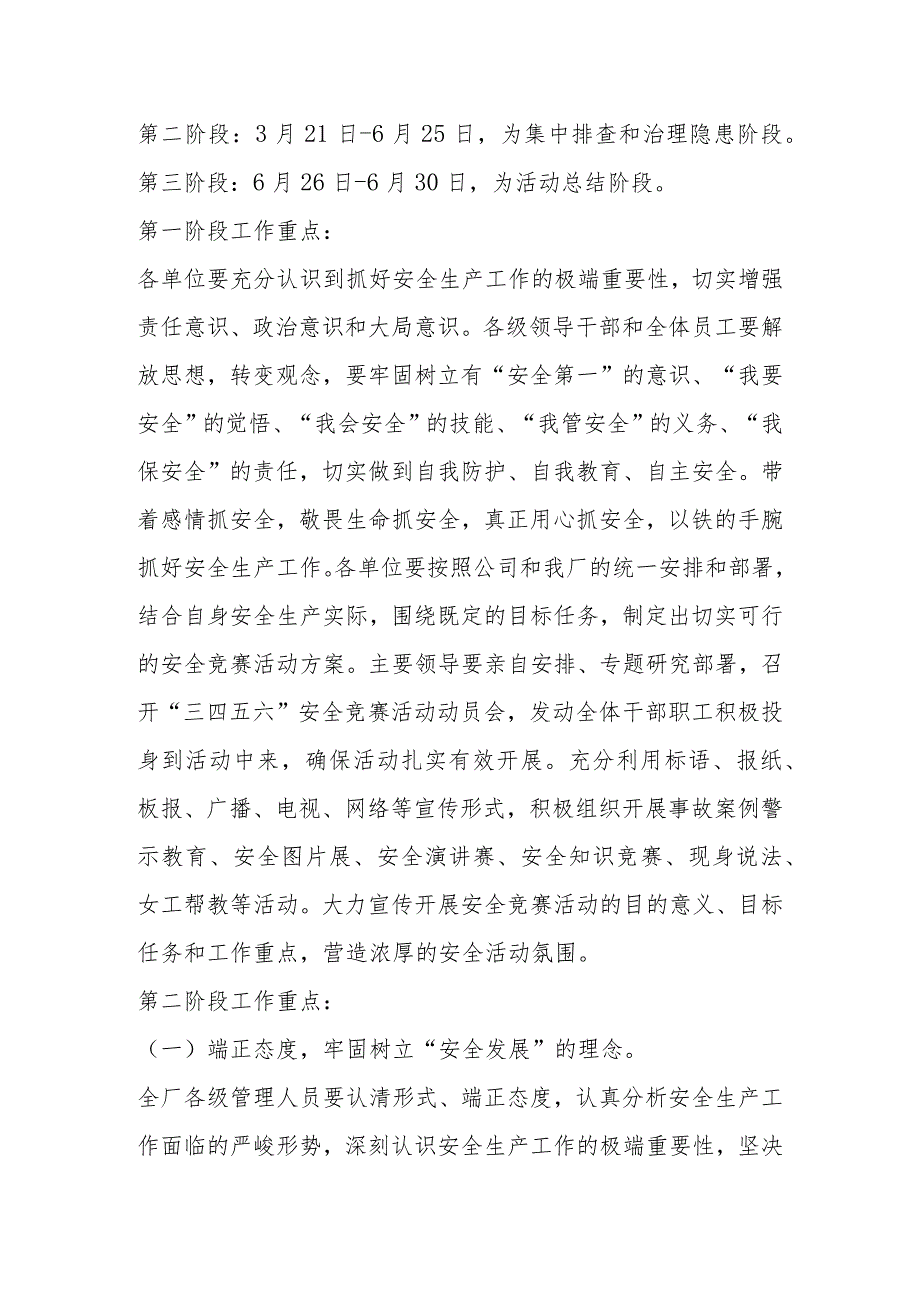 第二阶段：3 月 21 日-6 月 25 日，为集中排查和治理隐患阶段。
第三阶段：6 月 26 日-6 月 30 日，为活动总结阶段。
第一阶段工作重点：
各单位要充分认识到抓好安全生产工作的极端重要性，切实增强
责任意识、政治意识和大局意识。各级领导干部和全体员工要解
放思想，转变观念，要牢固树立有“安全第一”的意识、“我要
安全”的觉悟、“我会安全”的技能、“我管安全”的义务、“我
保安全”的责任，切实做到自我防护、自我教育、自主安全。带
着感情抓安全，敬畏生命抓安全，真正用心抓安全，以铁的手腕
抓好安全生产工作。各单位要按照公司和我厂的统一安排和部署，
结合自身安全生产实际，围绕既定的目标任务，制定出切实可行
的安全竞赛活动方案。主要领导要亲自安排、专题研究部署，召
开“三四五六”安全竞赛活动动员会，发动全体干部职工积极投
身到活动中来，确保活动扎实有效开展。充分利用标语、报纸、
板报、广播、电视、网络等宣传形式，积极组织开展事故案例警
示教育、安全图片展、安全演讲赛、安全知识竞赛、现身说法、
女工帮教等活动。大力宣传开展安全竞赛活动的目的意义、目标
任务和工作重点，营造浓厚的安全活动氛围。
第二阶段工作重点：
（一）端正态度，牢固树立“安全发展”的理念。
全厂各级管理人员要认清形式、端正态度，认真分析安全生产工
作面临的严峻形势，深刻认识安全生产工作的极端重要性，坚决